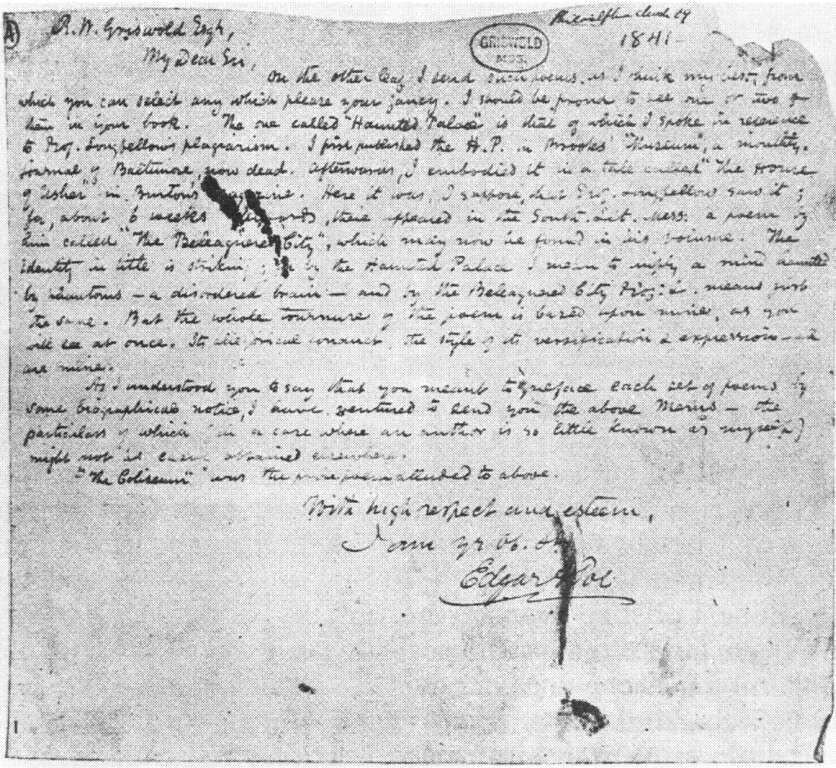 R. W. Griswold Esqr,
1841
GRISWOLD
MSS.
My Dear Sir,
On the other leaf I send such poems as I think my best, from
which you can select any which please your fancy. I should be proud to see one or two of
them in your book. The one called "Haunted Palace" is that of which I spoke in reference
to Prof. Longfellow's plagiarism. I first published the H.P. in Brooks' "Museum", a monthly
journal of Baltimore, now dead. Afterwards, I embodied it in a tale called "The House
of Usher" in Burton's Magazine. Here it was, I suppose, that Prof. Longfellow saw it;
for, about 6 weeks afterwards, there appeared in the South. Lit. Mess: a poem by
him called "The Beleaguered City", which may now be found in his volume. The
identity in title is striking; by the Haunted Palace I mean to imply a mind haunted
by phantoms — a disordered brain — and by the Beleaguered City Prof. L. means just
the same. But the whole tournure of the poem is based upon mine, as you
will see at once. Its allegorical conduct, the style of its versification & expression — all
are mine.
As I understood you to say that you meant to preface each set of poems by
some biographical notice, I have ventured to send you the above Memo — the
particulars of which (in a case where an author is so little known as myself)
might not be easily obtained elsewhere.
"The Coliseum" was the prize poem alluded to above.
With high respect and esteem,
I am yr Ob. St.
Edgar A Poe
1